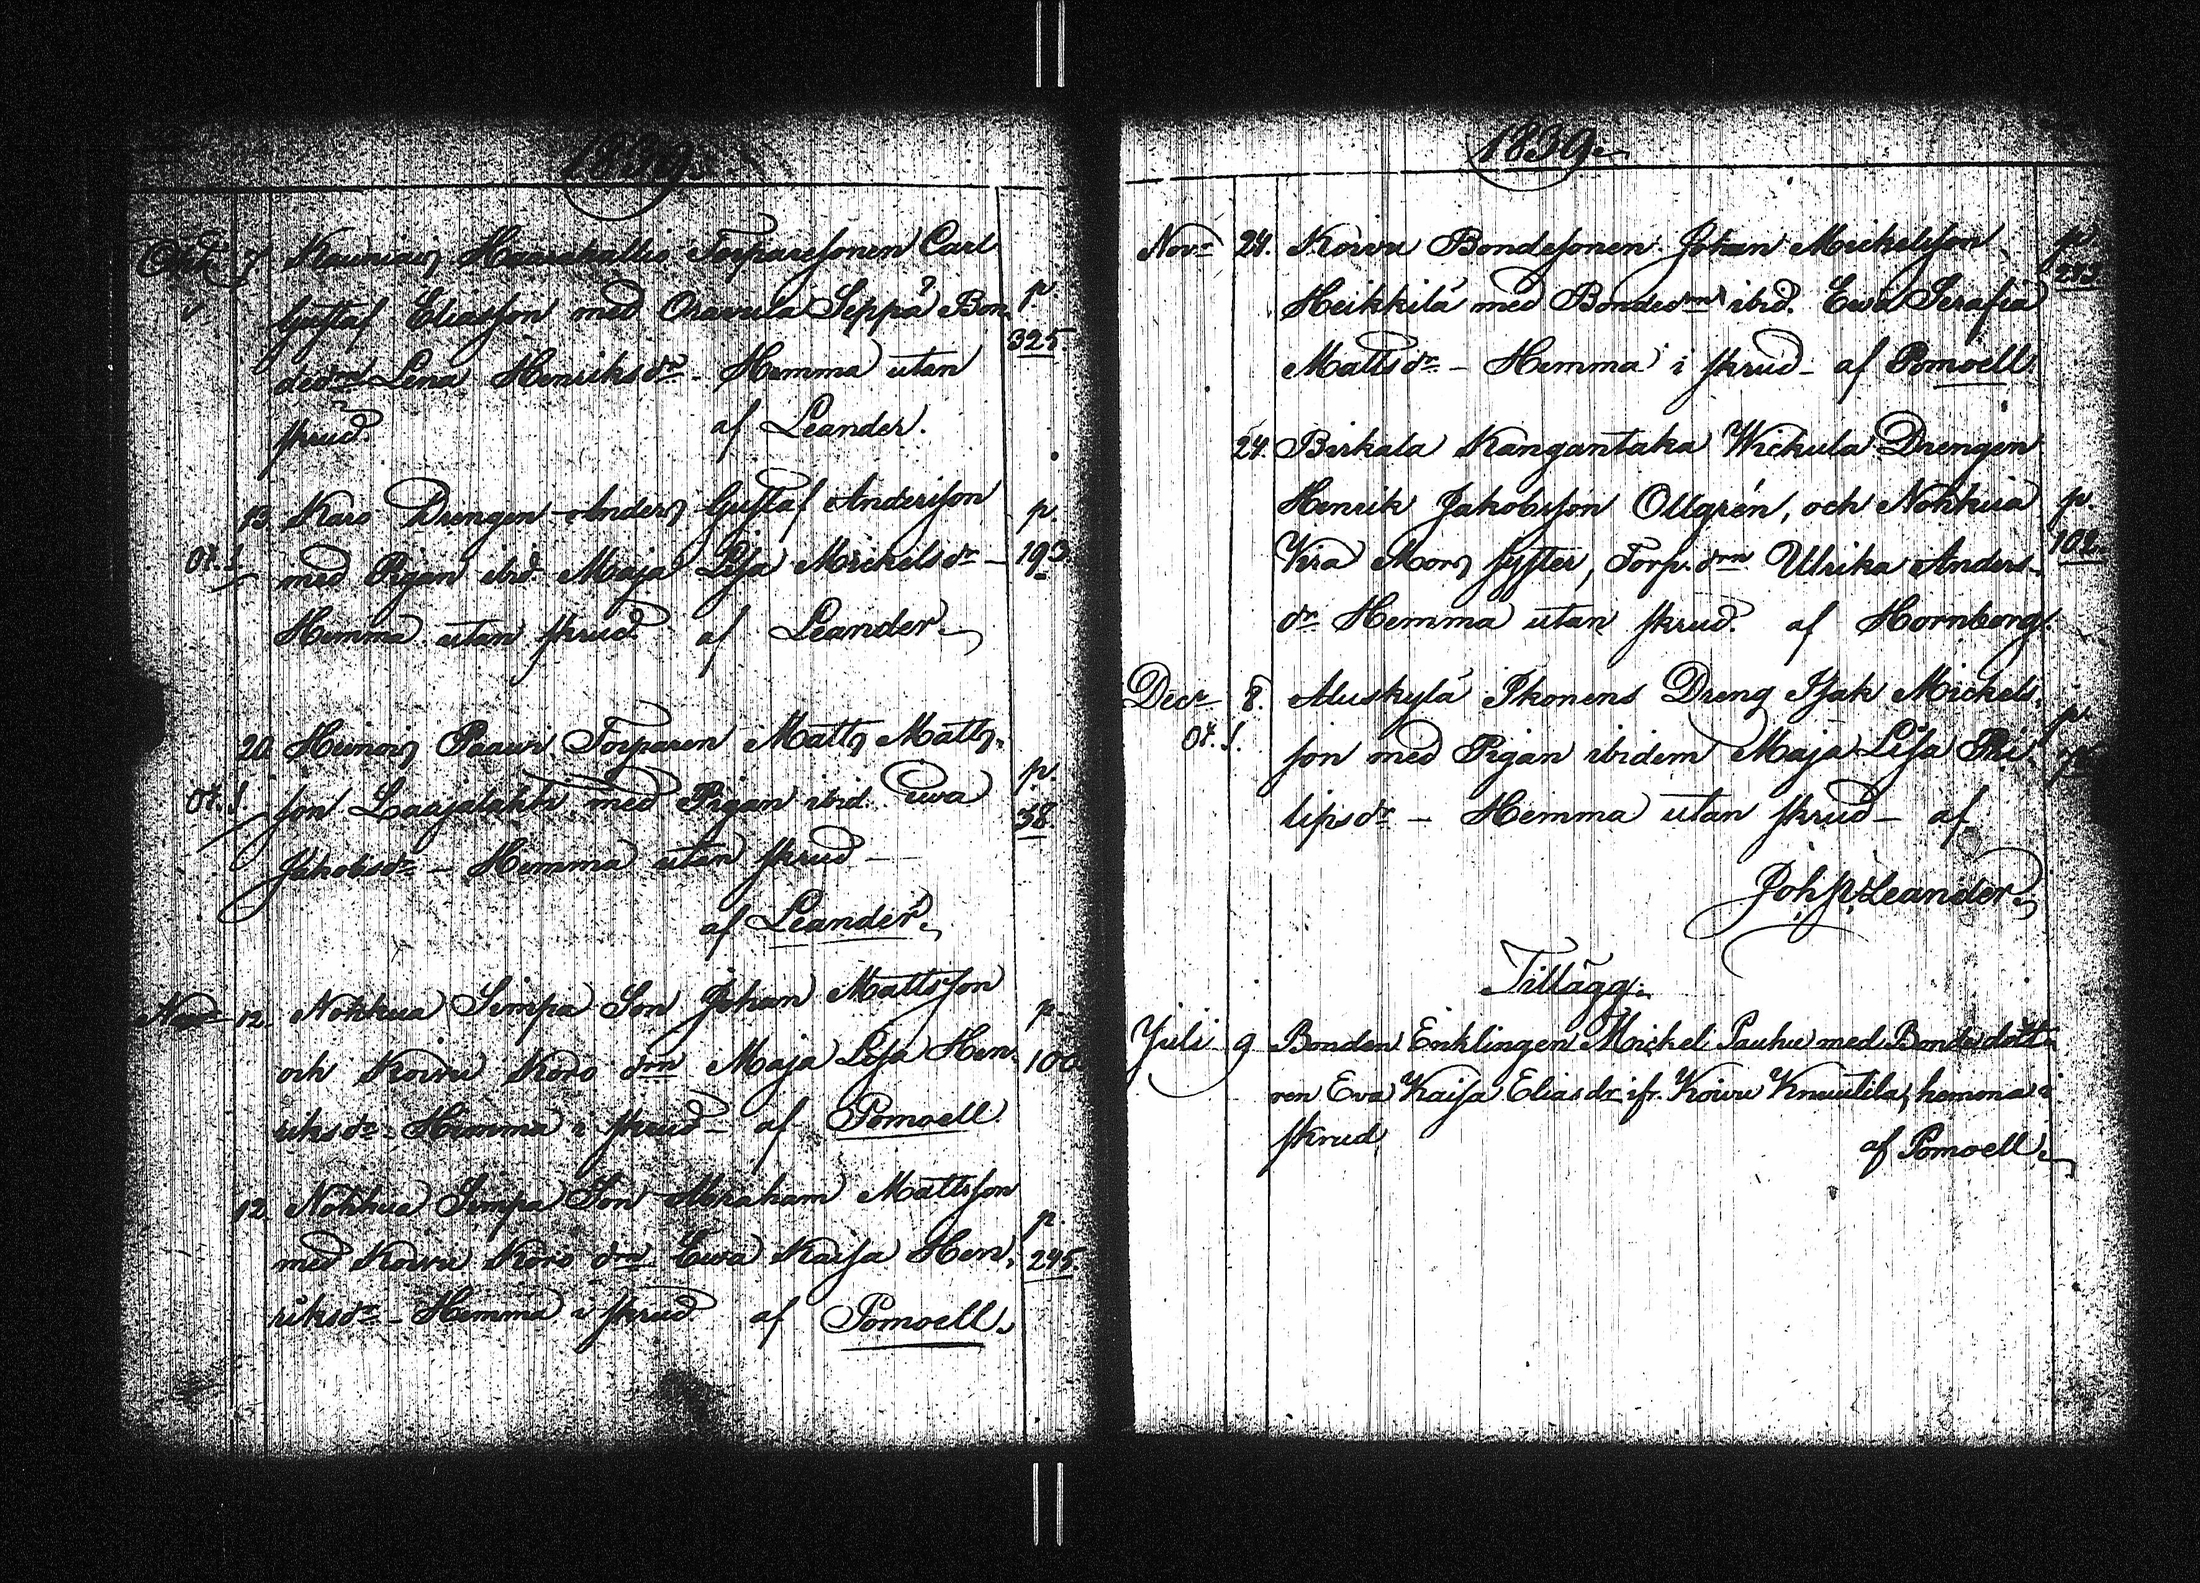 1839
Octr 7 Kauniais Haarakallio Torparesonen Carl
Gustaf Eliasson med Oravula Seppä Bon p.
dedrn Lena Henriksdr - Hemma utan 325.
skrud. af Leander.
13 Karo Drengen Anders Gustaf Andersson p.
med Pigan ibid. Maja Lisa Mickelsdr - 193.
Hemma utan skrud. af Leander.
20 Heinois Paavi Torparen Matts Matts-
son Laajalahti med Pigan ibid. Ewa p.
Jakobsdr - Hemma utan skrud - 38.
af Leander.
Novr 12. Nokkua Simpa Son Johan Mattsson p.
och Koivu Koro drn Maja Lisa Hen- 100
riksdr - Hemma i skrud - af Pomoell.
12. Nokkua Simpa Son Abraham Mattsson p.
med Koivu Koro drn Ewa Kaisa Hen- 245.
riksdr - Hemma i skrud af Pomoell.
1839.
Novr 24. Koivu Bondesonen Johan Mickelsson p.
Heikkilä med Bondedrn ibid. Ewa Serafia
Mattsdr - Hemma i skrud - af Pomoell.
24. Birkala Kangantaka Wickula Drengen
Henrik Jakobsson Ollgrén, och Nokkua p.
Kira Mors syster, Torp.drn Ulrika Anders- 102.
dr Hemma utan skrud. af Hornborg.
Decr 8. Aluskylä Ikonens Dreng Isak Mickels-
son med Pigan ibidem Maja Lisa Phi- p.
lipsdr - Hemma utan skrud - af
Joh. Leander.
Tillägg.
Juli 9 Bonden Enklingen Mickel Pauhu med Bondedott-
ren Eva Kaisa Eliasdr ifr. Koivu Knuutila, hemma i
skrud, af Pomoell.